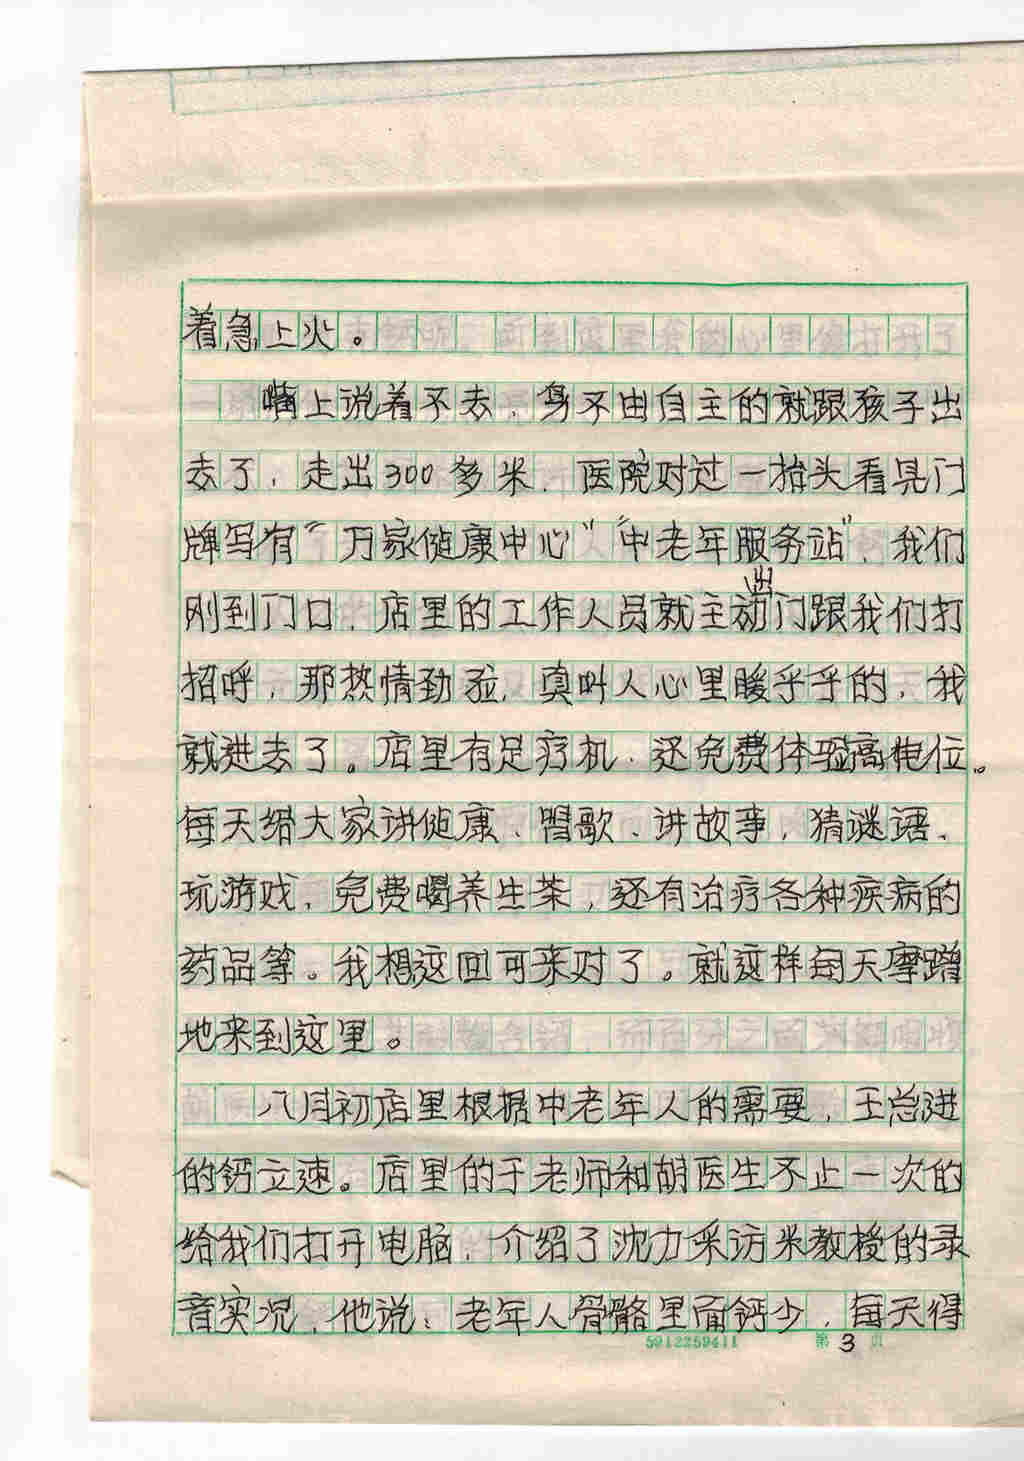 着急上火。
嘴上说着不去，身不由自主的就跟孩子出
去了，走出300多米，医院对过一抬头看见门
牌写有“万家健康中心”“中老年服务站”，我们
刚到门口，店里的工作人员就主动出门跟我们打
招呼，那热情劲 ，真叫人心里暖乎乎的，我
就进去了。店里有足疗机，还免费体验高电位。
每天给大家讲健康、唱歌、讲故事，猜谜语、
玩游戏，免费喝养生茶，还有治疗各种疾病的
药品等。我想这回可来对了。就这样每天摩蹭
地来到这里。
八月初店里根据中老年人的需要，王总进
的钙立速。店里的于老师和胡医生不止一次的
给我们打开电脑，介绍了沈力采访米教授的录
音实况，他说：老年人骨骼里面钙少，每天得
5912259411 第3页